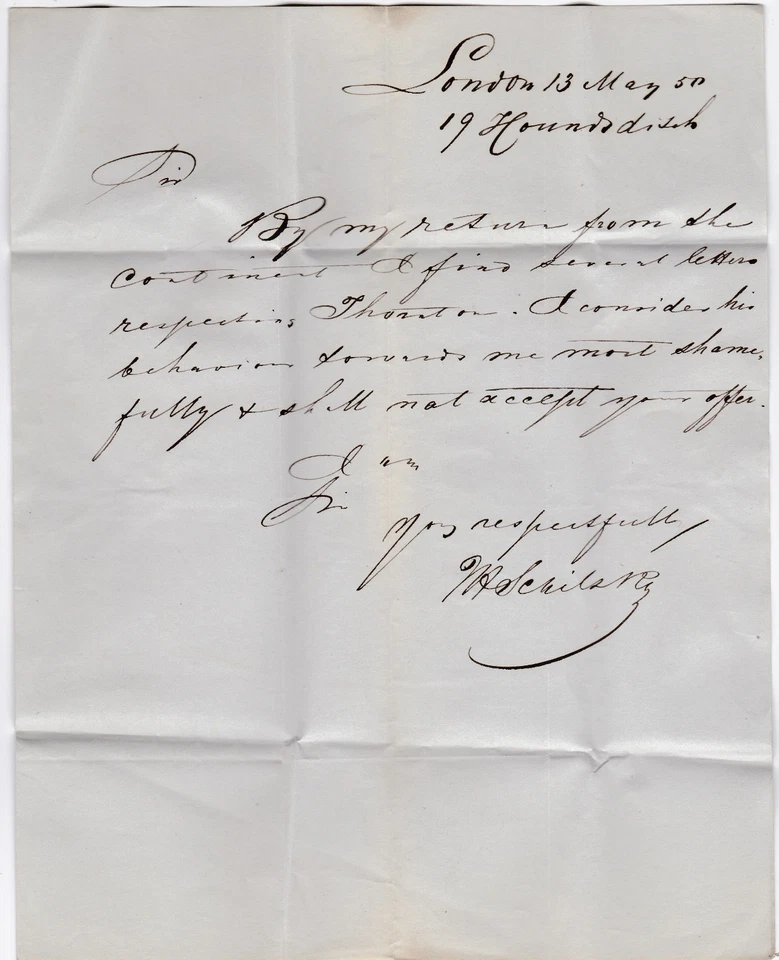 London 13 May 50
19 Houndsditch
Sir
By my return from the
continent I find several letters
respecting Thornton. I consider his
behavior towards me most shame,
fully & shall not accept your offer.
I am
Sir
your respectfully
Schilsky